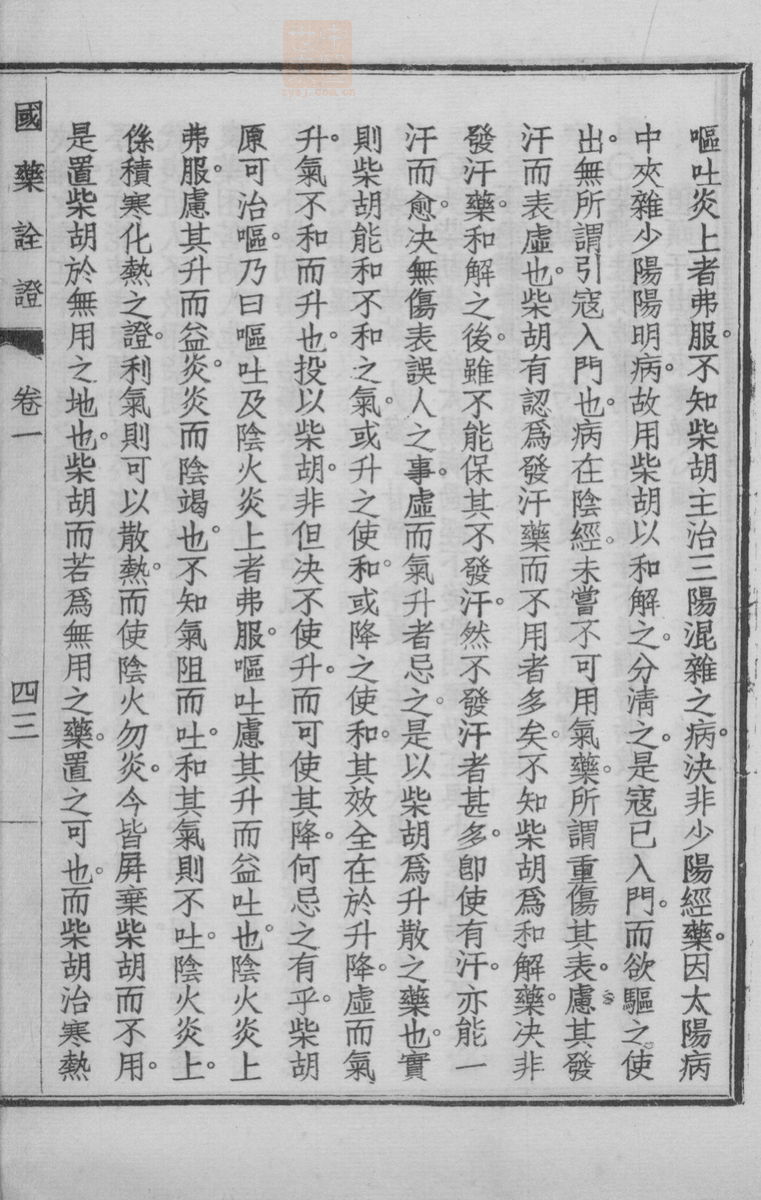 嘔吐炎上者弗服。不知柴胡主治三陽混雜之病。決非少陽經藥。因太陽病
中夾雜少陽陽明病。故用柴胡以和解之。分淸之。是寇已入門。而欲驅之。使
出。無所謂引寇入門也。病在陰經。未嘗不可用氣藥。所謂重傷其表。慮其發
汗而表虛也。柴胡有認爲發汗藥而不用者多矣。不知柴胡爲和解藥。决非
發汗藥。和解之後。雖不能保其不發汗。然不發汗者甚多。卽使有汗。亦能一
汗而愈。决無傷表誤人之事。虛而氣升者忌之。是以柴胡爲升散之藥也。實
則柴胡能和不和之氣。或升之使和。或降之使和。其效全在於升降。虛而氣
升。氣不和而升也。投以柴胡。非但决不使升。而可使其降。何忌之有乎。柴胡
原可治嘔。乃曰嘔吐及陰火炎上者弗服。嘔吐慮其升而益吐也。陰火炎上
弗服。慮其升而益炎。炎而陰竭也。不知氣阻而吐。和其氣則不吐。陰火炎上。
係積寒化熱之證。利氣則可以散熱。而使陰火勿炎。今皆屛棄柴胡而不用。
是置柴胡於無用之地也。柴胡而若爲無用之藥。置之可也。而柴胡治寒熱
國藥詮證
卷一
四三
zysj.com.cn